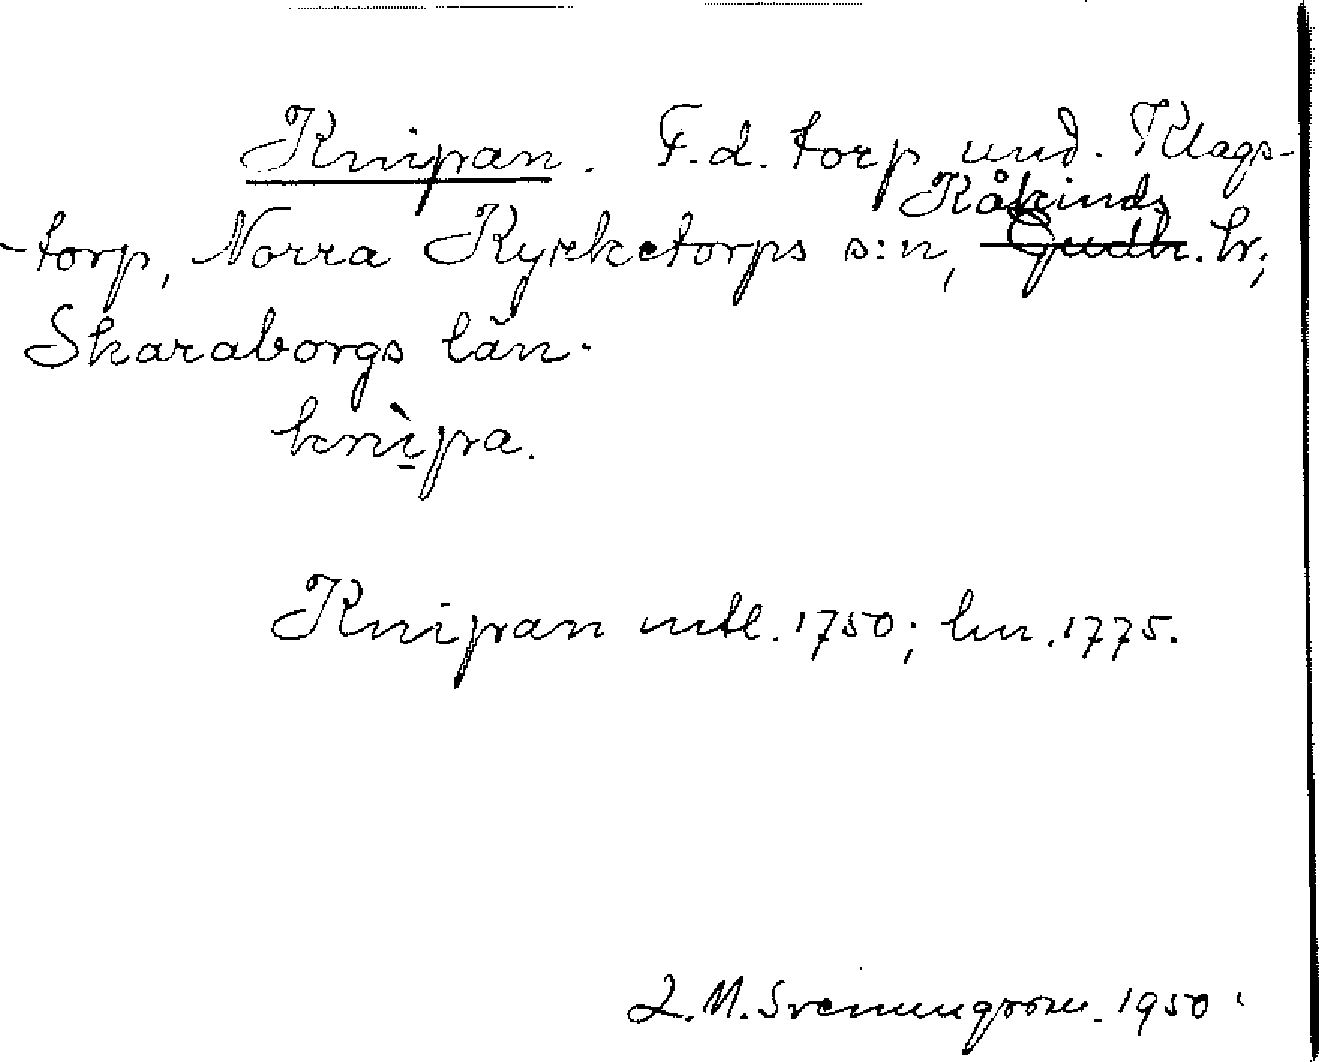 Knipan. F.d. torp und. Klags-
-torp, Norra Kyrketorps s:n, Kåkinds hr;
Skaraborgs län.
knìpa.
Knipan mtl. 1750; hm. 1775.
L.M. Svenungsson. 1950.